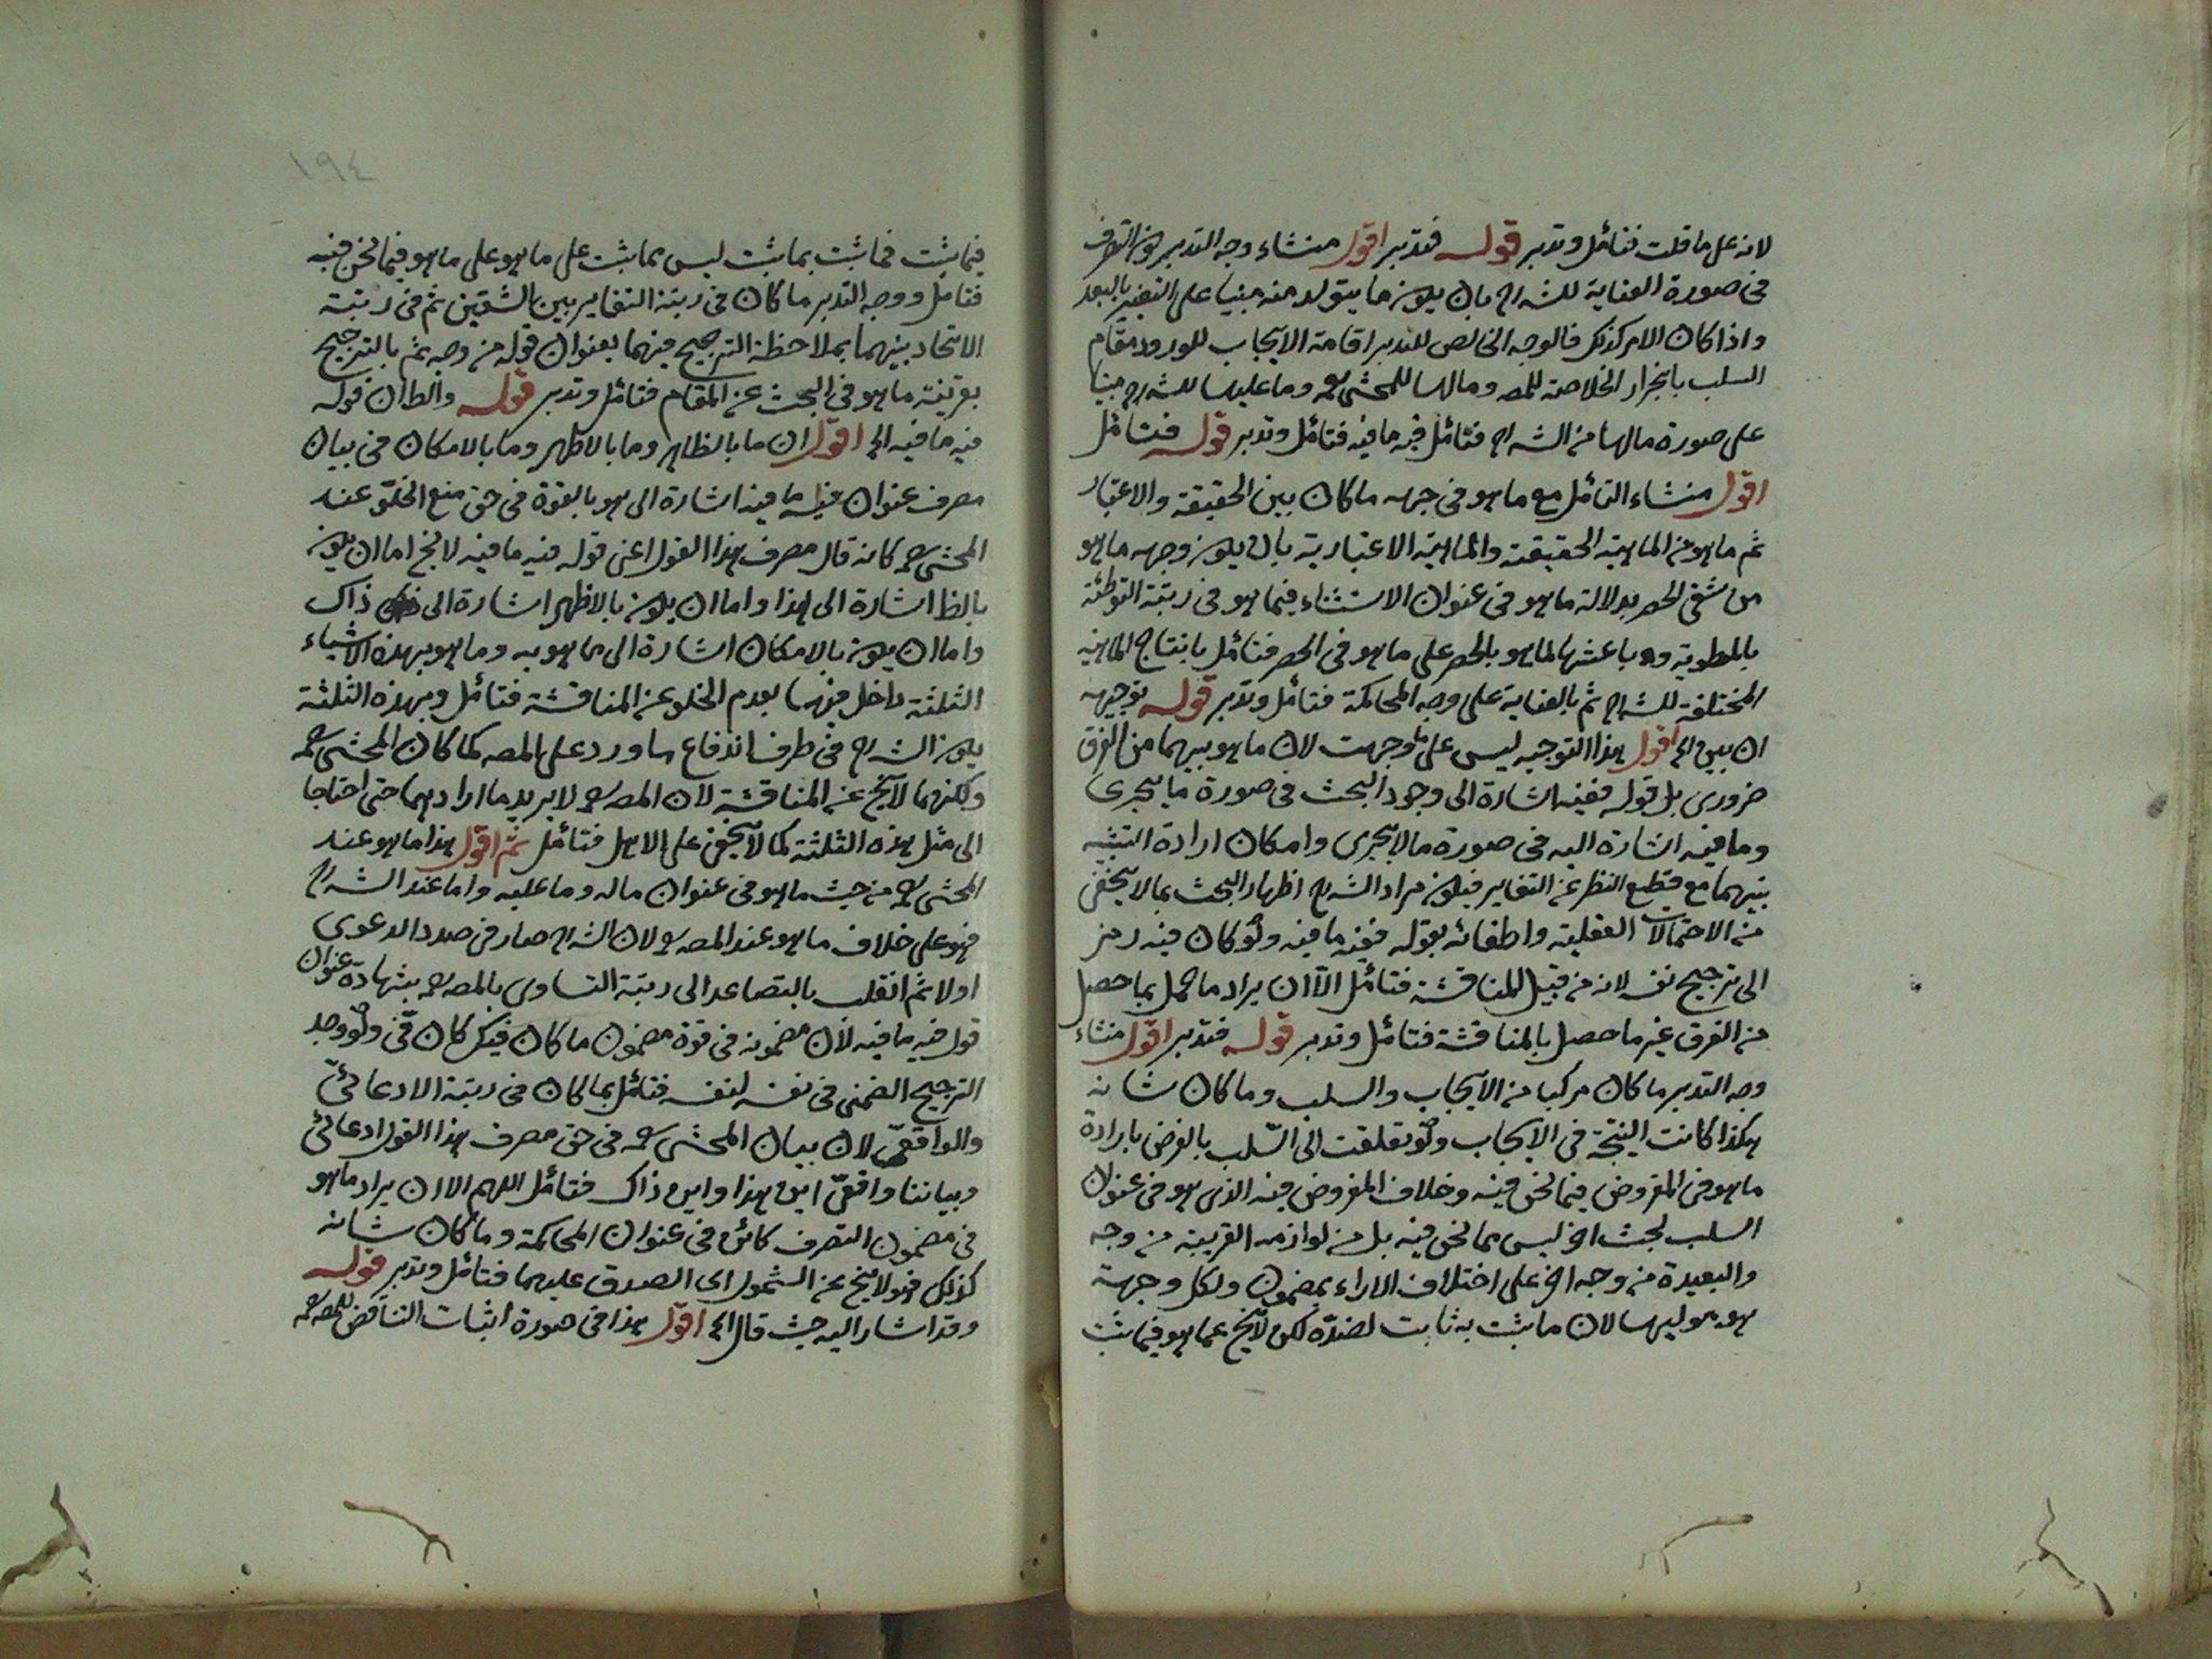 لانه على ما قلت فتأمل وتدبر قوله فتدبر اقول منشاء وجه التدبر هو التعرف
فى صورة العناية للشارح بان يكون ما يتولد منه مبنيا على التغيير بالبعد
واذا كان الامر كذلك فالوجه الخالص للتدبر اقامة الايجاب للورود مقام
السلب بانجرار الخلاصة للمصـ ومالها للمحشى رحمه وما عليها للشارح مبنيا
على صورة مالها من الشارح فتأمل فيه ما فيه فتأمل وتدبر قوله فتأمل
اقول منشاء التأمل مع ما هو فى جهة ما كان بين الحقيقة والاعتبار
ثم ما هو من الماهية الحقيقة والماهية الاعتبارية بان يكون وجهه ما هو
من شقى الحصر بدلالة ما هو فى عنوان الاستثناء فيما هو فى رتبة التوطئة
بالمطوية وباعثها لما هو بالحصر على ما هو فى الحصر فتأمل بانتاج الماهية
المختلفة للشارح ثم بالعناية على وجه المحاكمة فتأمل وتدبر قوله توجيهه
ان يبين الخ اقول هذا التوجيه ليس على ما وجهت لان ما هو بينهما من الفرق
ضرورى بل قوله ففيه اشارة الى وجود البحث فى صورة ما يجرى
وما فيه اشارة اليه فى صورة ما لا يجرى وامكان ارادة التنبيه
بينهما مع قطع النظر عن التغاير فيكون مراد الشارح اظهار البحث بما لا يخفى
من الاحتمالات العقلية واطفائه بقوله ففيه ما فيه ولو كان فيه رمز
الى ترجيح نفسه لانه من قبيل المناقشة فتأمل الا ان يراد ما حمل بما حصل
من الفرق غير ما حصل بالمناقشة فتأمل وتدبر قوله فتدبر اقول منشاء
وجه التدبر ما كان مركبا من الايجاب والسلب وما كان شانه
هكذا كانت النتيجة فى الايجاب ولو تعلقت الى السلب بالفرض بارادة
ما هو فى المفروض فيما نحن فيه وخلاف المفروض فيه الذى هو فى عنوان
السلب لبحث اخر ليس مما نحن فيه بل من لوازمه القريبة من وجه
والبعيدة من وجه اخر على اختلاف الاراء بمضمون ولكل وجهة
هو موليها لان ما يثبت به ثابت لضده لكن لا يخ عما هو فيما يثبت
١٩٤
فيما يثبت فما يثبت بما يثبت ليس بما يثبت على ما هو على ما هو فيما نحن فيه
فتأمل ووجه التدبر ما كان فى رتبة التغاير بين الشقين ثم فى رتبة
الاتحاد بينهما بملاحظة الترجيح فيهما بعنوان قوله من وجه ثم بالترجيح
بقرينة ما هو فى البحث عن المقام فتأمل وتدبر قوله والظ ان قوله
فيه ما فيه الخ اقول ان ما بالظاهر وما بالاظهر وما بالامكان فى بيان
مصرف عنوان فيه ما فيه اشارة الى هو بالقوة فى حق منع الخلو عند
المحشى رحمه كانه قال مصرف هذا القول اعنى قوله فيه ما فيه لا يخ اما ان يكون
بالظ اشارة الى هذا واما ان يكون بالاظهر اشارة الى ذاك
واما ان يكون بالامكان اشارة الى ما هو به وما هو بهذه الاشياء
الثلثة داخل فيها بعدم الخلو عن المناقشة فتأمل وبهذه الثلثة
يكون الشارح فى طرف اندفاع ما ورد على المصـ كما كان المحشى رحمه
ولكنهما لا يخ عن المناقشة لان المصـ رحمه لا يريد ما ارادهما حتى احتاجا
الى مثل هذه الثلثة كما لا يخفى على الاهل فتأمل ثم اقول هذا ما هو عند
المحشى رحمه من حيث ما هو فى عنوان ماله وما عليه واما عند الشارح
فهو على خلاف ما هو عند المصـ رحمه لان الشارح صار فى صدد الدعوى
اولا ثم انقلب بالتصاعد الى رتبة التساوى بالمصـ رحمه بشهادة عنوان
قوله فيه ما فيه لان مضمونه فى قوة مضمون ما كان فيك كان فى ولو وجد
الترجيح الضمنى فى نفسه لنفسه فتأمل بما كان فى رتبة الادعائى
والواقعى لان بيان المحشى رحمه فى حق مصرف هذا القول ادعائى
وبياننا واقعى اين هذا واين ذاك فتأمل اللهم الا ان يراد ما هو
فى مضمون التصرف كائن فى عنوان المحاكمة وما كان شانه
كذلك فهو لا يخ عن الشمول اى الصدق عليهما فتأمل وتدبر قوله
وقد اشار اليه حيث قال الخ اقول هذا فى صورة اثبات التناقض للمصـ رحمه